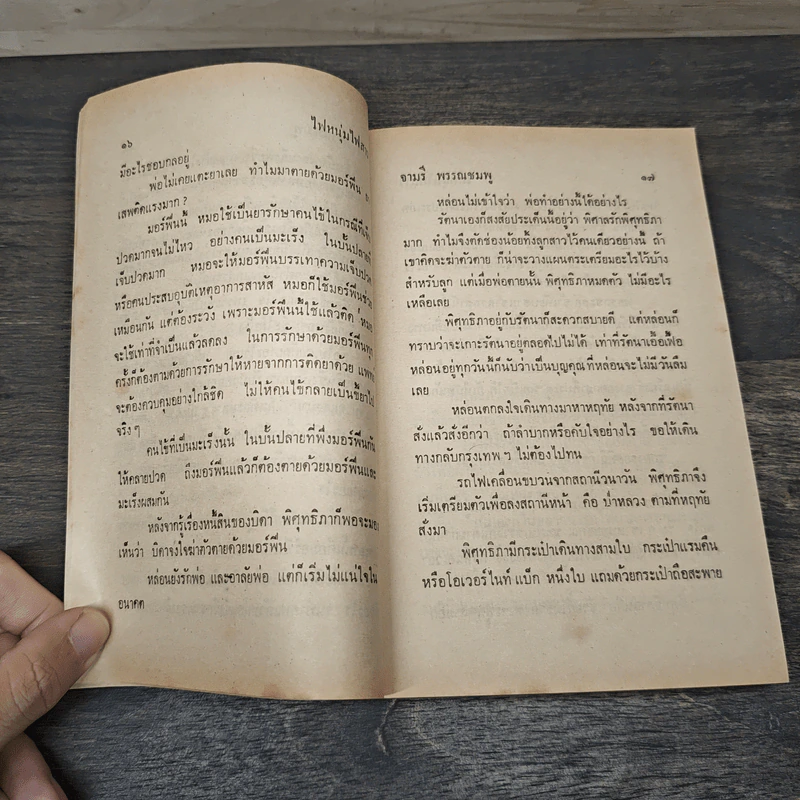 ๑๖
ไฟหนุ่มไฟสาว
มีอะไรชอบกลอยู่
พ่อไม่เคยแตะยาเลย ทำไมมาตายด้วยมอร์ฟีน
เสพติดแรงมาก ?
มอร์ฟีนนี้ หมอใช้เป็นยารักษาคนไข้ในกรณีที่เจ็บ
ปวดมากจนไม่ไหว อย่างคนเป็นมะเร็ง ในบั้นปลายที่
เจ็บปวดมาก หมอจะให้มอร์ฟีนบรรเทาความเจ็บปวด
หรือคนประสบอุบัติเหตุอาการสาหัส หมอก็ใช้มอร์ฟีนช่วย
เหมือนกัน แต่ต้องระวัง เพราะมอร์ฟีนนี้ใช้แล้วติด หมอ
จะใช้เท่าที่จำเป็นแล้วลดลง ในการรักษาด้วยมอร์ฟีนทุก
ครั้งก็ต้องตามด้วยการรักษาให้หายจากการติดยาด้วย แพทย์
จะต้องควบคุมอย่างใกล้ชิด ไม่ให้คนไข้กลายเป็นขี้ยาไป
จริง ๆ
คนไข้ที่เป็นมะเร็งนั้น ในบั้นปลายที่พึ่งมอร์ฟีนกัน
ให้คลายปวด ถึงมอร์ฟีนแล้วก็ต้องตายด้วยมอร์ฟีนและ
มะเร็งผสมกัน
หลังจากรู้เรื่องหนี้สินของบิดา พิศุทธิภาก็พอจะมอง
เห็นว่า บิดาจงใจฆ่าตัวตายด้วยมอร์ฟีน
หล่อนยังรักพ่อ และอาลัยพ่อ แต่ก็เริ่มไม่แน่ใจใน
อนาคต
จามรี พรรณชมพู
๑๗
หล่อนไม่เข้าใจว่า พ่อทำอย่างนี้ได้อย่างไร
รัตนาเองก็สงสัยประเด็นนี้อยู่ว่า พิศาลรักพิศุทธิภา
มาก ทำไมจึงตัดช่องน้อยทิ้งลูกสาวไว้คนเดียวอย่างนี้ ถ้า
เขาคิดจะฆ่าตัวตาย ก็น่าจะวางแผนตระเตรียมอะไรไว้บ้าง
สำหรับลูก แต่เมื่อพ่อตายนั้น พิศุทธิภาหมดตัว ไม่มีอะไร
เหลือเลย
พิศุทธิภาอยู่กับรัตนาก็สะดวกสบายดี แต่หล่อนก็
ทราบว่าจะเกาะรัตนาอยู่ตลอดไปไม่ได้ เท่าที่รัตนาเอื้อเฟื้อ
หล่อนอยู่ทุกวันนี้ก็นับว่าเป็นบุญคุณที่หล่อนจะไม่มีวันลืม
เลย
หล่อนตกลงใจเดินทางมาหาหฤทัย หลังจากที่รัตนา
สั่งแล้วสั่งอีกว่า ถ้าลำบากหรือคับใจอย่างไร ขอให้เดิน
ทางกลับกรุงเทพ ฯ ไม่ต้องไปทน
รถไฟเคลื่อนขบวนจากสถานีวนาวัน พิศุทธิภาจึง
เริ่มเตรียมตัวเพื่อลงสถานีหน้า คือ ป่าหลวง ตามที่หฤทัย
สั่งมา
พิศุทธิภามีกระเป๋าเดินทางสามใบ กระเป๋าแรมคืน
หรือโอเวอร์ไนท์ แบ็ก หนึ่งใบ แถมด้วยกระเป๋าถือสะพาย